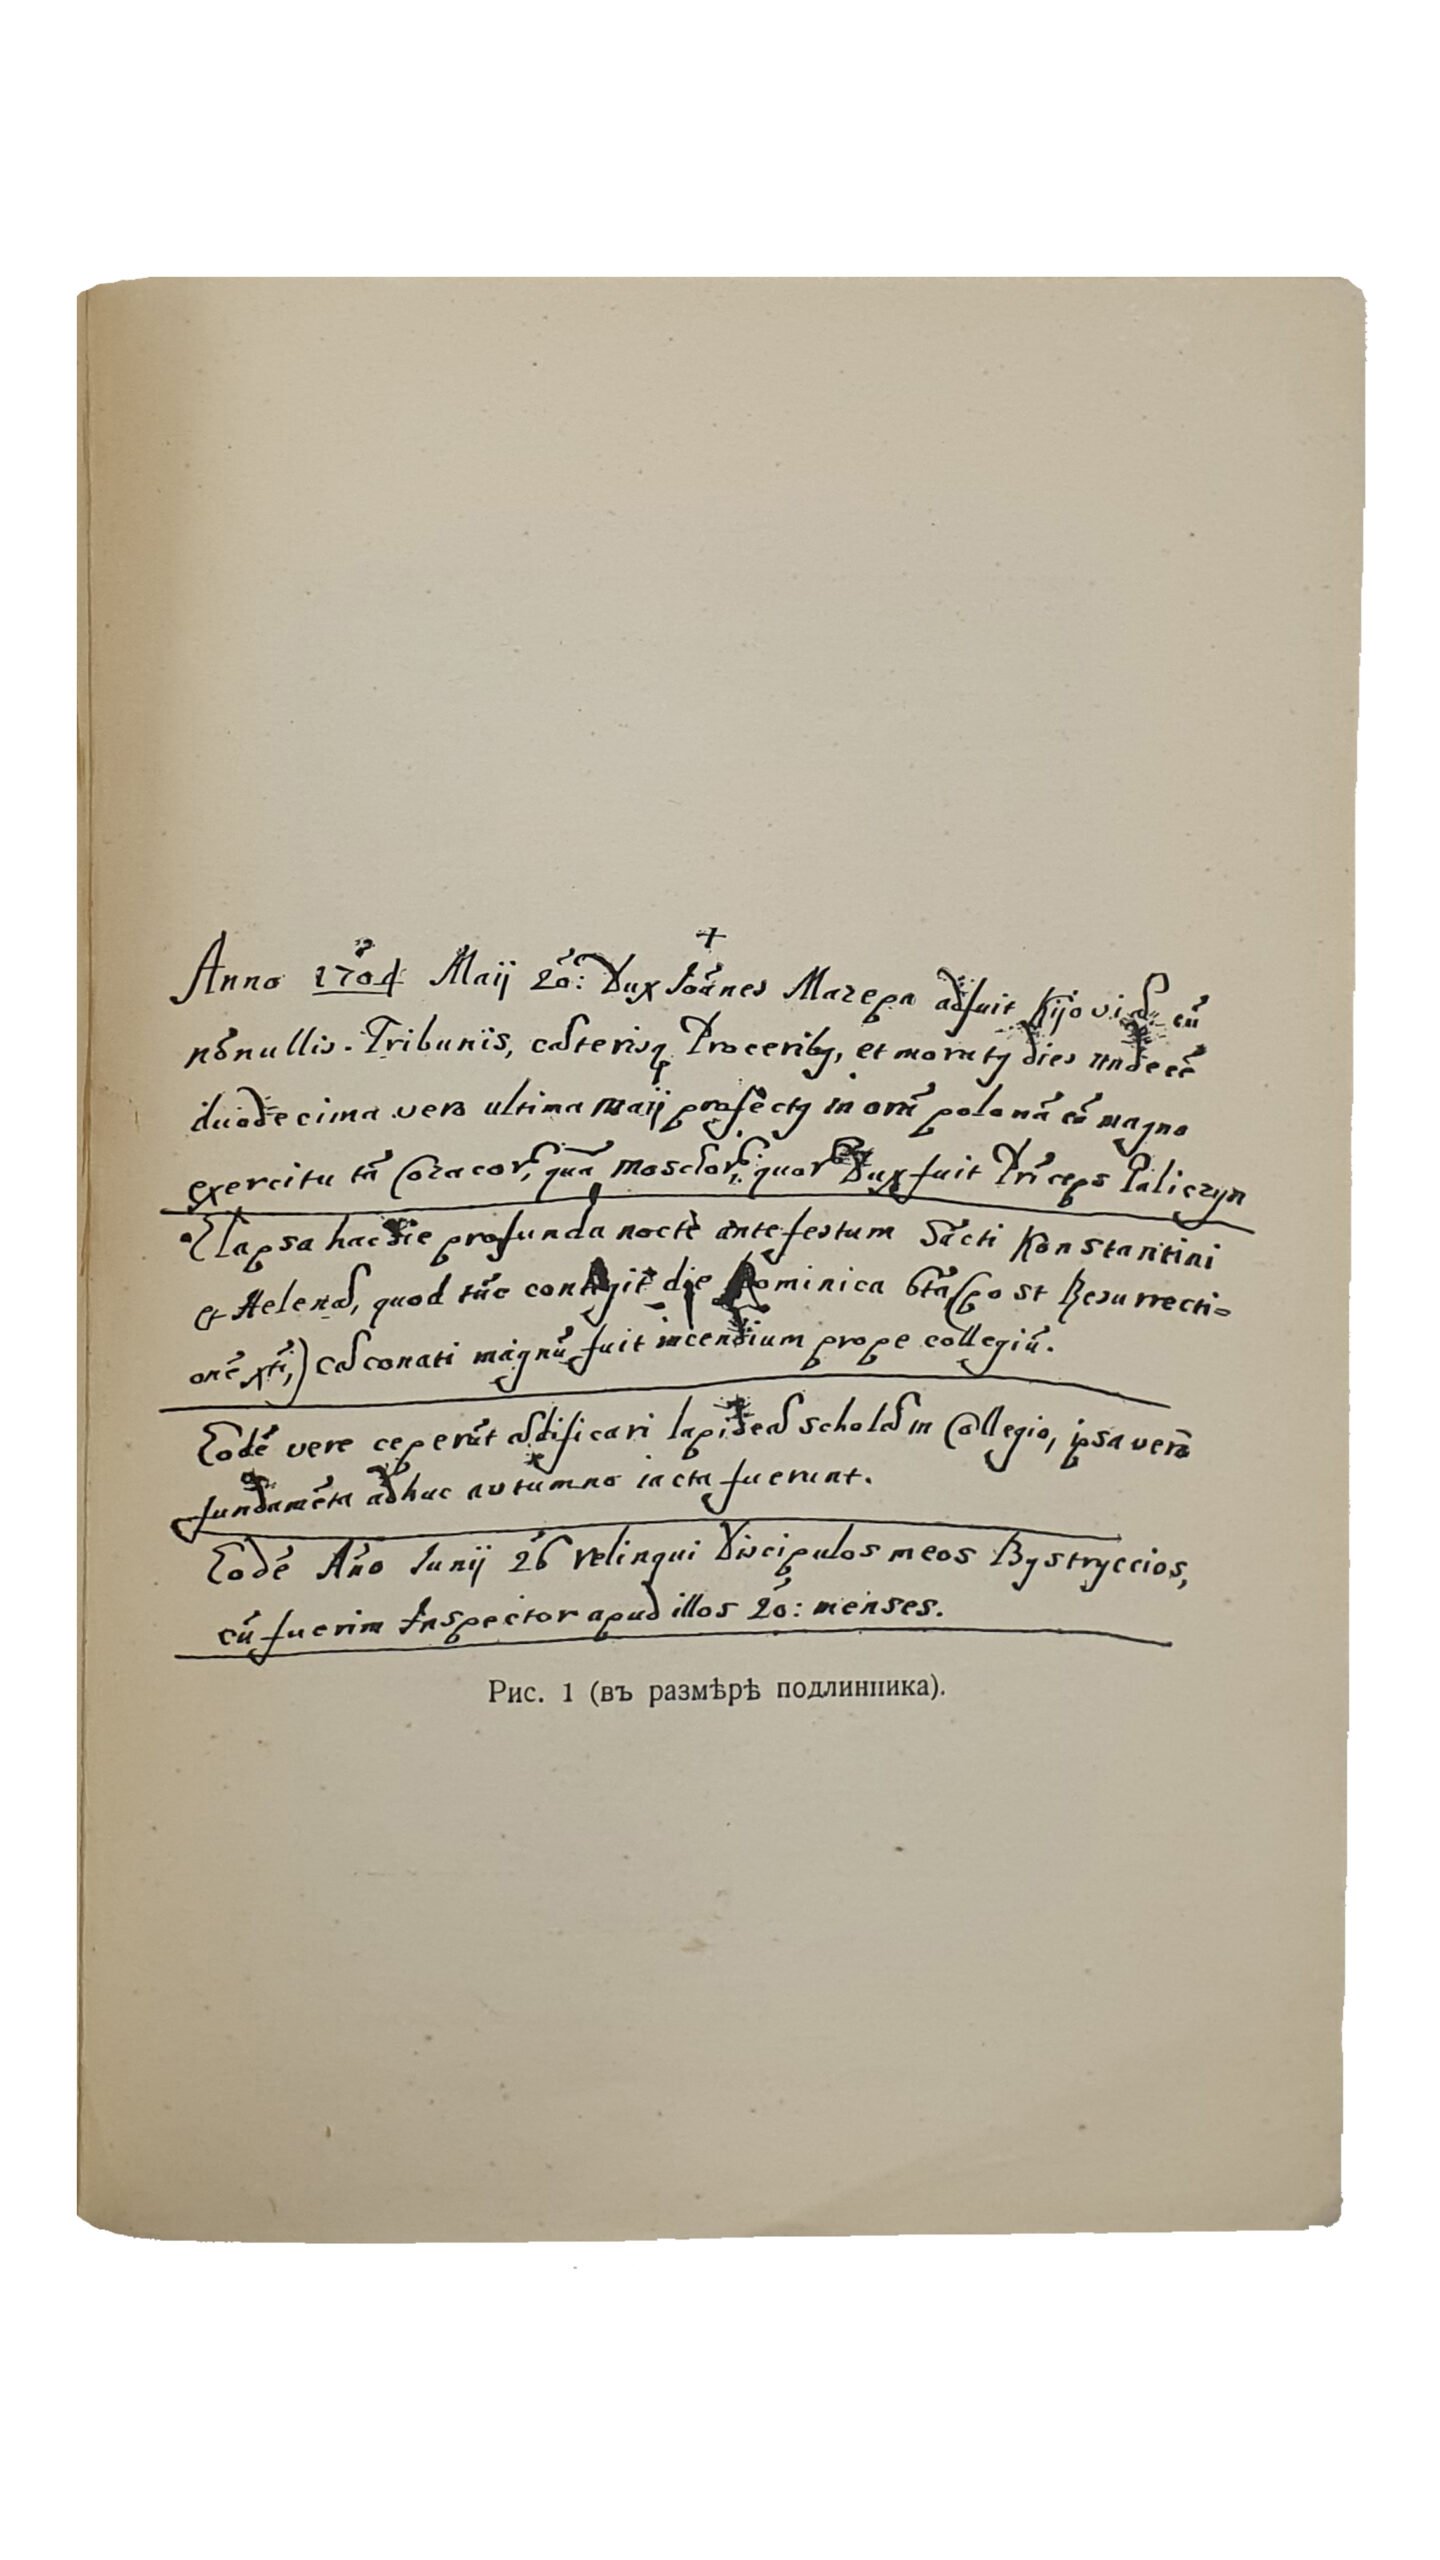 Anno 1704 Maij 20: Dux Ioānes Mazepa adfuit Kijoviæ cū
nōnullis Tribunis, cæterisq Proceribꝯ, et moratꝯ dies undecē
duodecima vero ultima maij profectꝯ in orā polonā cū magno
exercitu tā Cozacor, quā Moschor, quor Dux fuit Prīceps Galiczyn
Elapsa hac die profunda nocte ante festum Sācti Konstantini
et Helenæ, quod tūc contigit die Dominica 6ta (post Resurrecti=
onē xti,) cæconati magnū fuit incendium prope collegiū.
Eodē vere ceperūt ædificari lapideæ scholæ in Collegio, ipsa vero
fundamēta adhuc autumno iacta fuerunt.
Eodē Año Iunij 26 relinqui Discipulos meos Bystryccios,
cū fuerim Inspector apud illos 20: menses.
Рис. 1 (въ размѣрѣ подлинника).